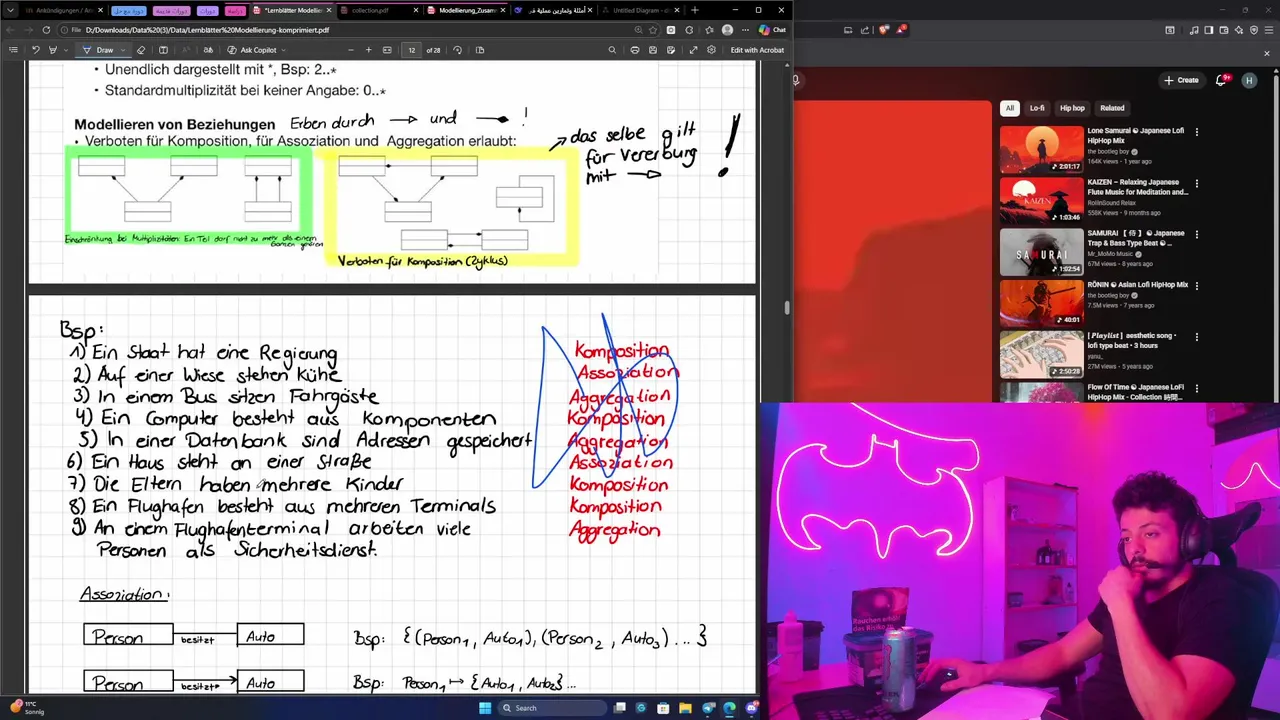 Ankündigungen / An
دورة مع حل
دورات قديمة
دورات
دراسة
*Lernblätter Modellier
collection.pdf
Modellierung_Zusam
أمثلة وتمارين عملية في
Untitled Diagram - d
File
D:/Downloads/Data%20(3)/Data/Lernblätter%20Modellierung-komprimiert.pdf
Chat
Draw
Ask Copilot
12 of 28
Edit with Acrobat
• Unendlich dargestellt mit *, Bsp: 2..*
• Standardmultiplizität bei keiner Angabe: 0..*
Modellieren von Beziehungen Erben durch und !
• Verboten für Komposition, für Assoziation und Aggregation erlaubt:
das selbe gilt
für Vererbung
mit
!
Einschränkung bei Multiplizitäten: Ein Teil darf nicht zu mehr als einem
Ganzen gehören
Verboten für Komposition (Zyklus)
Bsp:
1) Ein Staat hat eine Regierung Komposition
2) Auf einer Wiese stehen Kühe Assoziation
3) In einem Bus sitzen Fahrgäste Aggregation
4) Ein Computer besteht aus Komponenten Komposition
5) In einer Datenbank sind Adressen gespeichert Aggregation
6) Ein Haus steht an einer Straße Assoziation
7) Die Eltern haben mehrere Kinder Komposition
8) Ein Flughafen besteht aus mehreren Terminals Komposition
9) An einem Flughafenterminal arbeiten viele Aggregation
Personen als Sicherheitsdienst.
Assoziation:
Person besitzt Auto Bsp: {(Person1, Auto1), (Person2, Auto3) ... }
Person besitzt Auto Bsp: Person1 ↦ {Auto1, Auto2}...
Create
9+
H
All
Lo-fi
Hip hop
Related
Lone Samurai ☯ Japanese Lofi
HipHop Mix
the bootleg boy
164K views • 1 year ago
2:01:17
KAIZEN – Relaxing Japanese
Flute Music for Meditation and...
RollinSound Relax
558K views • 9 months ago
1:03:46
SAMURAI 【 侍 】 ☯ Japanese
Trap & Bass Type Beat ☯ ...
Mr_MoMo Music
67M views • 8 years ago
SAMURAI
1:02:54
RŌNIN ☯ Asian Lofi HipHop Mix
the bootleg boy
7.5M views • 7 years ago
40:01
[ Playlist ] aesthetic song •
lofi type beat • 3 hours
yanu_
27M views • 5 years ago
2:50:28
Flow Of Time ☯ Japanese LoFi
HipHop Mix - Collection
Rauchen erhöht
das Risiko
11°C
Sonnig
Search